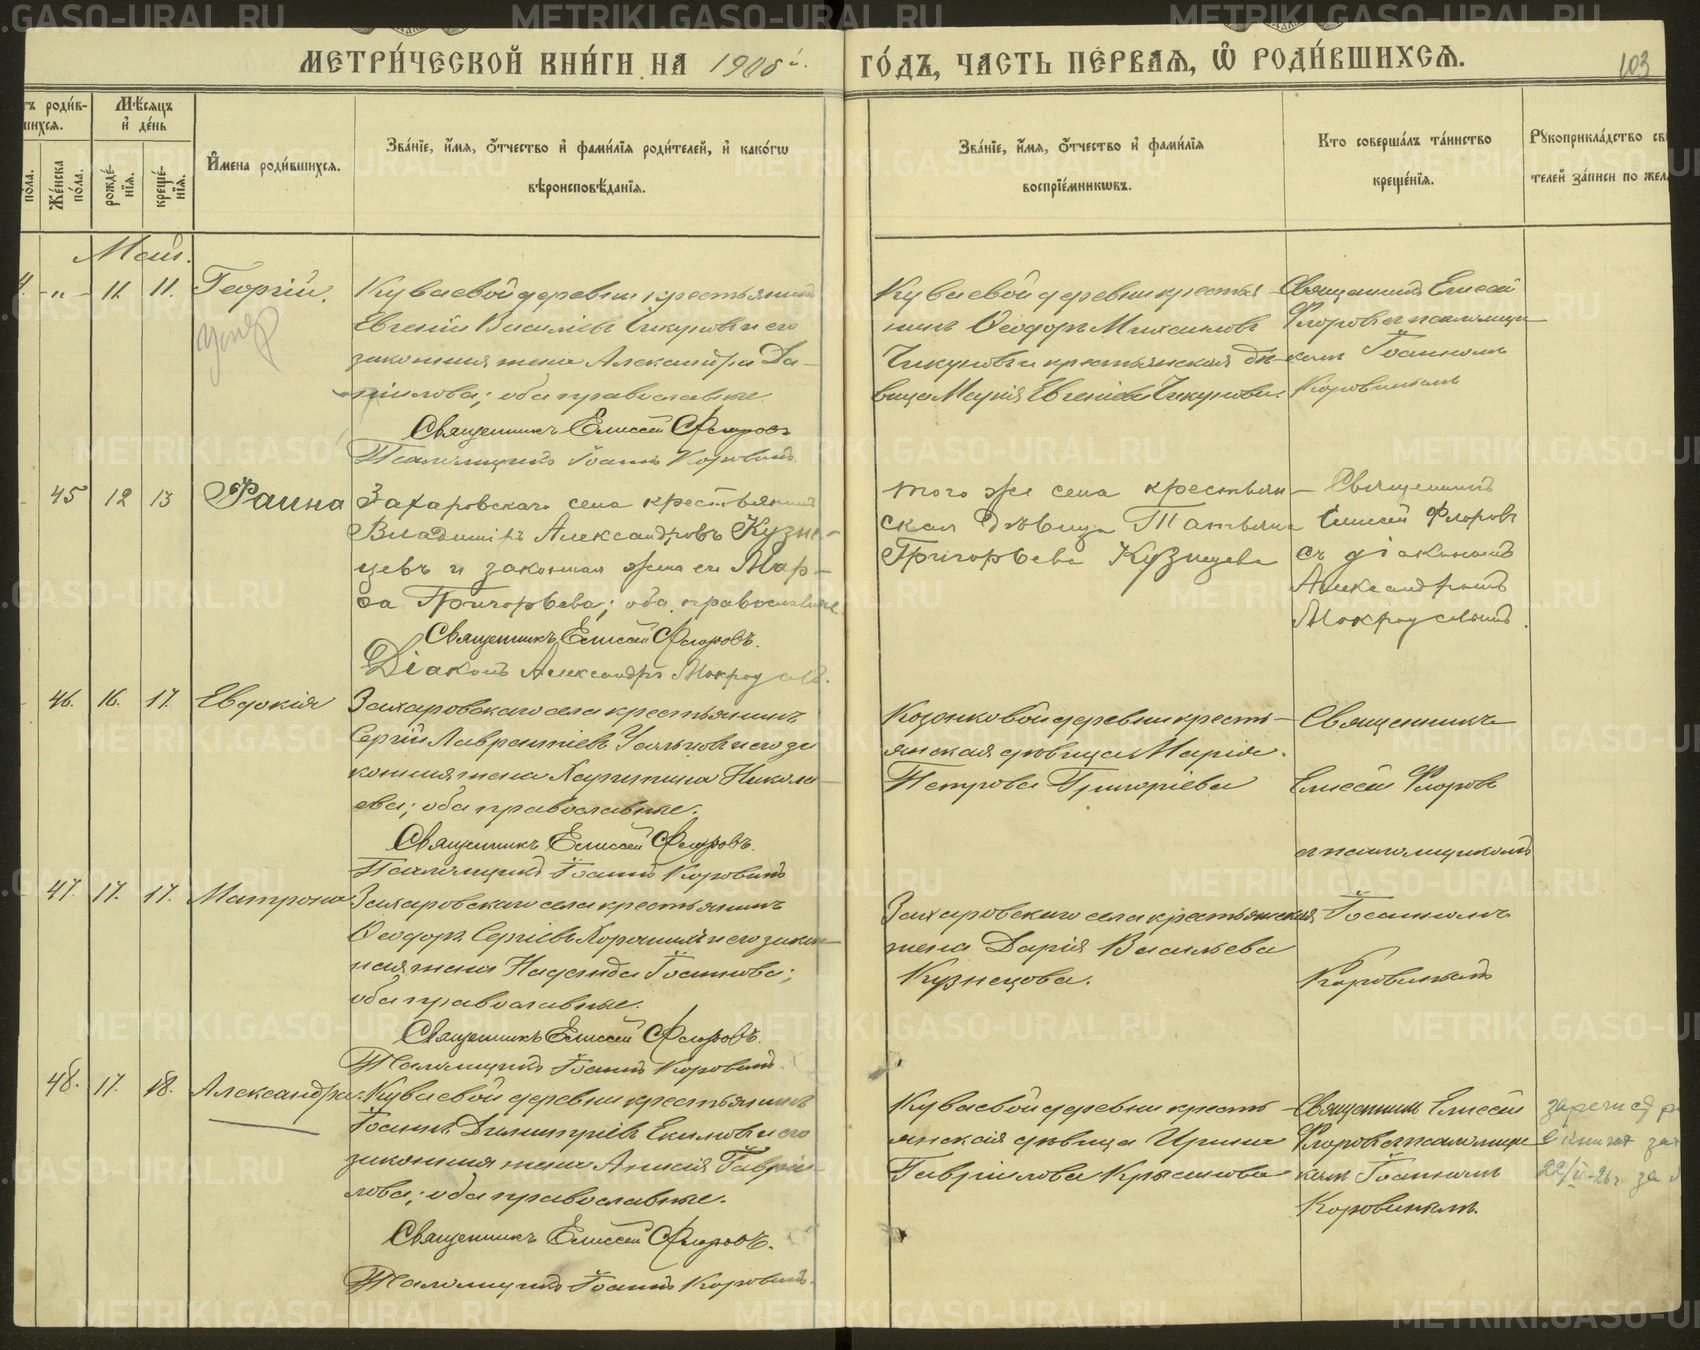 МЕТРИ́ЧЕСКОЙ КНИ́ГИ НА 1908й.
ГО́ДЪ, ЧАСТЬ ПЕ́РВАЯ, Ѡ҆ РОДИ́ВШИХСЯ.
103
роди́в-
шихся.
Мѣ́сяцъ
и҆ де́нь
по́ла.
Же́нска
по́ла.
рожде́-
нїя.
креще́-
нїя.
И҆мена роди́вшихся.
Зва́нїе, и҆́мя, о҆́тчество и҆ фами́лїя роди́телей, и҆ како́гѡ
вѣроисповѣ́данїя.
Зва́нїе, и҆́мя, о҆́тчество и҆ фами́лїя
воспрїе́мникѡвъ.
Кто соверша́лъ та́инство
креще́нїя.
Рꙋкоприкла́дство
телей за́писи по
Май.
-"- 11. 11. Георгій.
умер
Куваевой деревни крестьянинъ
Евгеній Василіевъ Чикуновъ и его
законная жена Александра Да-
ніилова; оба православные
Священникъ Елисей Флоровъ
Псаломщикъ Іоаннъ Коровинъ
Куваевой деревни крестья-
нинъ Ѳеодоръ Михаиловъ
Чикуновъ и крестьянская дѣ-
вица Марія Евгеніева Чикунова.
Священникъ Елисей
Флоровъ с псаломщи-
комъ Іоанномъ
Коровинымъ
45 12 13 Фаина
Захаровскаго села крестьянинъ
Владиміръ Александровъ Кузне-
цевъ и законная жена его Мар-
ѳа Григорьева; оба православные
Священникъ Елисей Флоровъ.
Діаконъ Александръ
того же села крестьян-
ская дѣвица Татьяна
Григорьева Кузнецева
Священникъ
Елисей Флоровъ
съ діакономъ
Александромъ
46. 16. 17. Евдокія
Захаровскаго села крестьянинъ
Сергій Лаврентіевъ и его за
конная жена Харитина Никола-
ева; оба православные.
Священникъ Елисей Флоровъ.
Псаломщикъ Іоаннъ Коровинъ
Козонковой деревни кресть-
янская дѣвица Марія
Петрова Григоріева
Священникъ
Елисей Флоровъ
с псаломщикомъ
47. 17. 17. Матрона
Захаровскаго села крестьянинъ
Ѳеодоръ Сергіевъ и его закон-
ная жена Надежда Іоаннова;
оба православные.
Священникъ Елисей Флоровъ.
Псаломщикъ Іоаннъ Коровинъ
Захаровскаго села крестьянская
жена Дарія Васильева
Кузнецова.
Іоанномъ
Коровинымъ
48. 17. 18. Александра
Куваевой деревни крестьянинъ
Іоаннъ Димитріевъ Екимовъ и его
законная жена Анисія Гавріи-
лова; оба православные.
Священникъ Елисей Флоровъ.
Псаломщикъ Іоаннъ Коровинъ.
Куваевой деревни кресть-
янская дѣвица Ирина
Гавріилова
Священникъ Елисей
Флоровъ с псаломщи-
комъ Іоанномъ
Коровинымъ.
METRIKI.GASO-URAL.RU